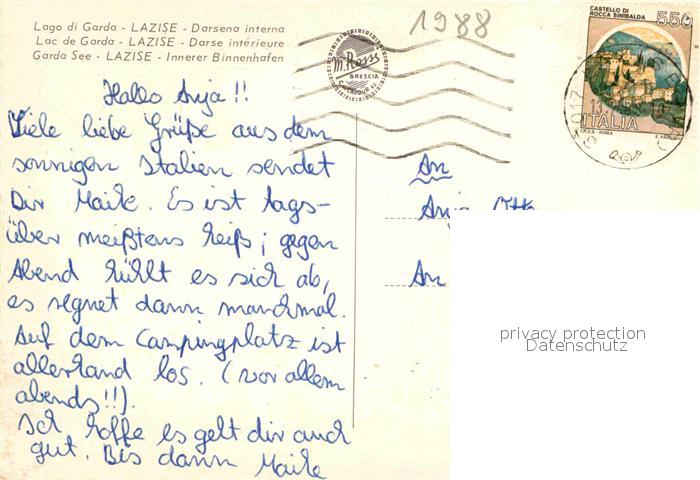 Lago di Garda - LAZISE - Darsena interna
Lac de Garda - LAZISE - Darse intérieure
Garda See - LAZISE - Innerer Binnenhafen
1988
m. Ross
BRESCIA
CASTELLO DI
ROCCA SINIBALDA
550
ITALIA
I.P.Z.S. - ROMA
Hallo Anja!!
Viele liebe Grüße aus dem
sonnigen Italien sendet
Dir Maike. Es ist tags-
über meißtens heiß; gegen
Abend kühlt es sich ab,
es regnet dann manchmal.
Auf dem Campingplatz ist
allerhand los. (vor allem
abends!!).
Ich hoffe es gelt dir auch
gut. Bis dann Maike
An
Anja
An
privacy protection
Datenschutz